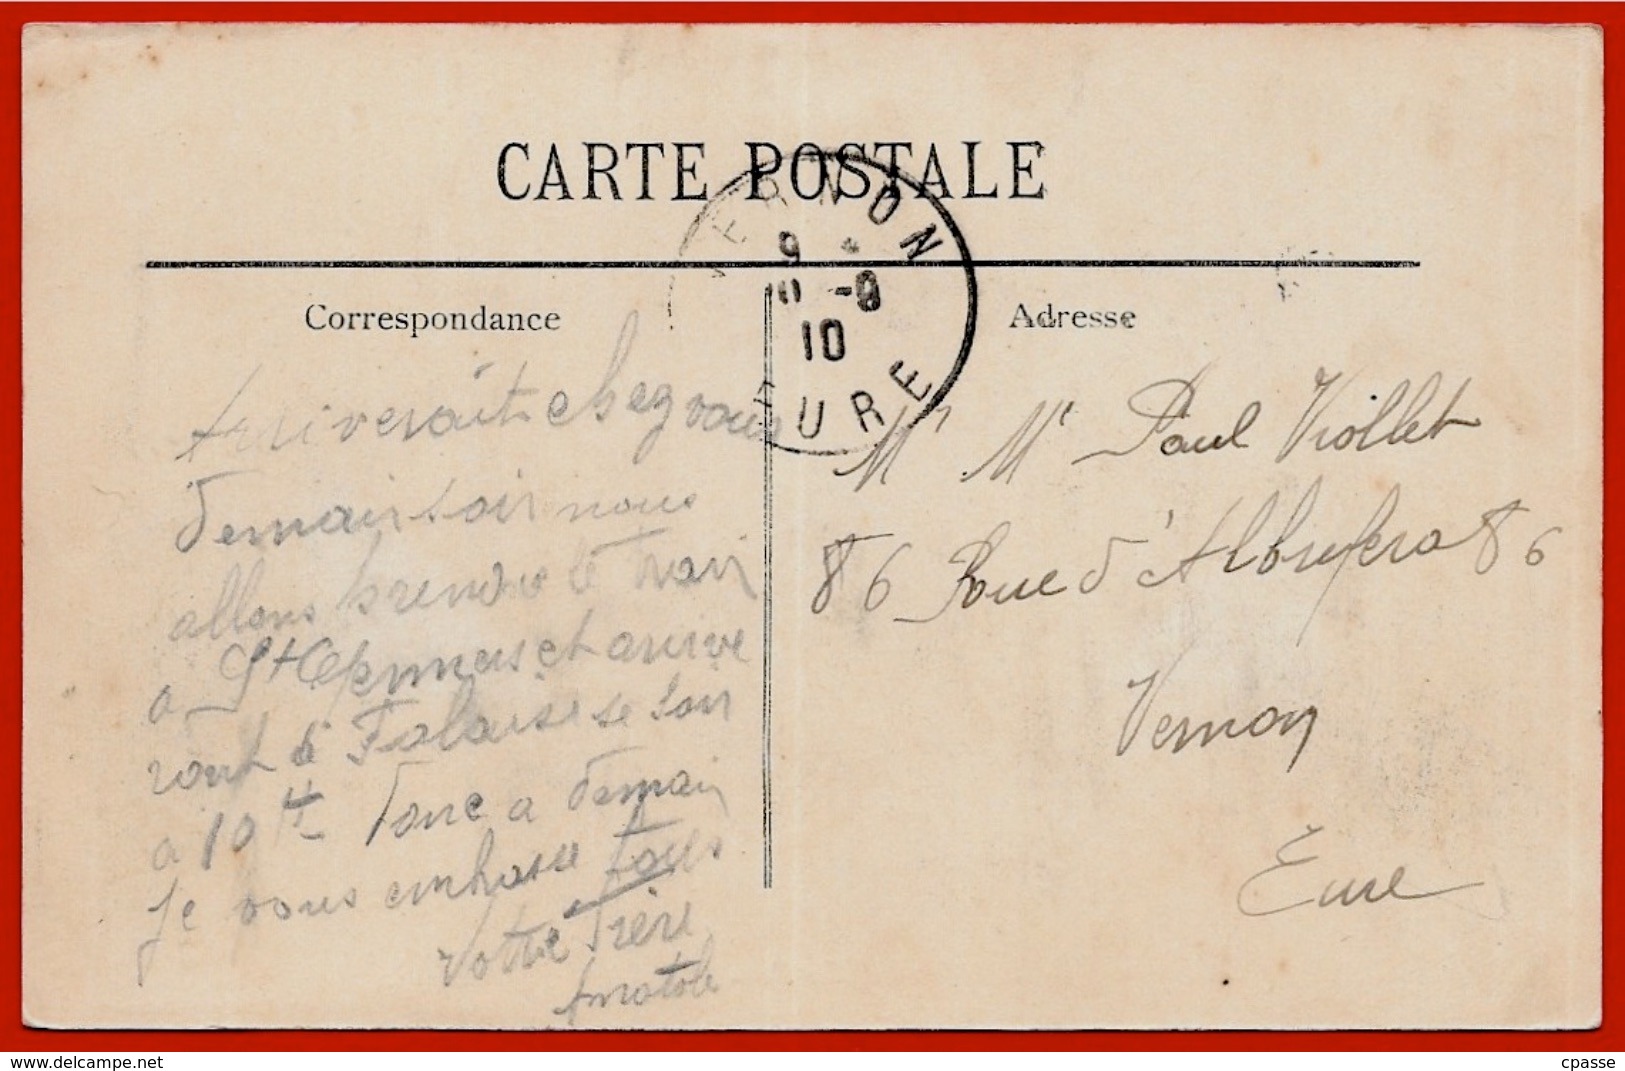 CARTE POSTALE
VERNON
9 *
10 -9
10
EURE
Correspondance
Adresse
Arriverait chez vous
Demain soir nous
allons prendre le train
a St et arrive
ront a Falaise se soir
a 10 H Donc a demain
Je vous embrasse tous
Votre Frère
Anatole
Mr Me Paul Viollet
86 Rue d'Albufera 86
Vernon
Eure
delcampe.net
cpasse